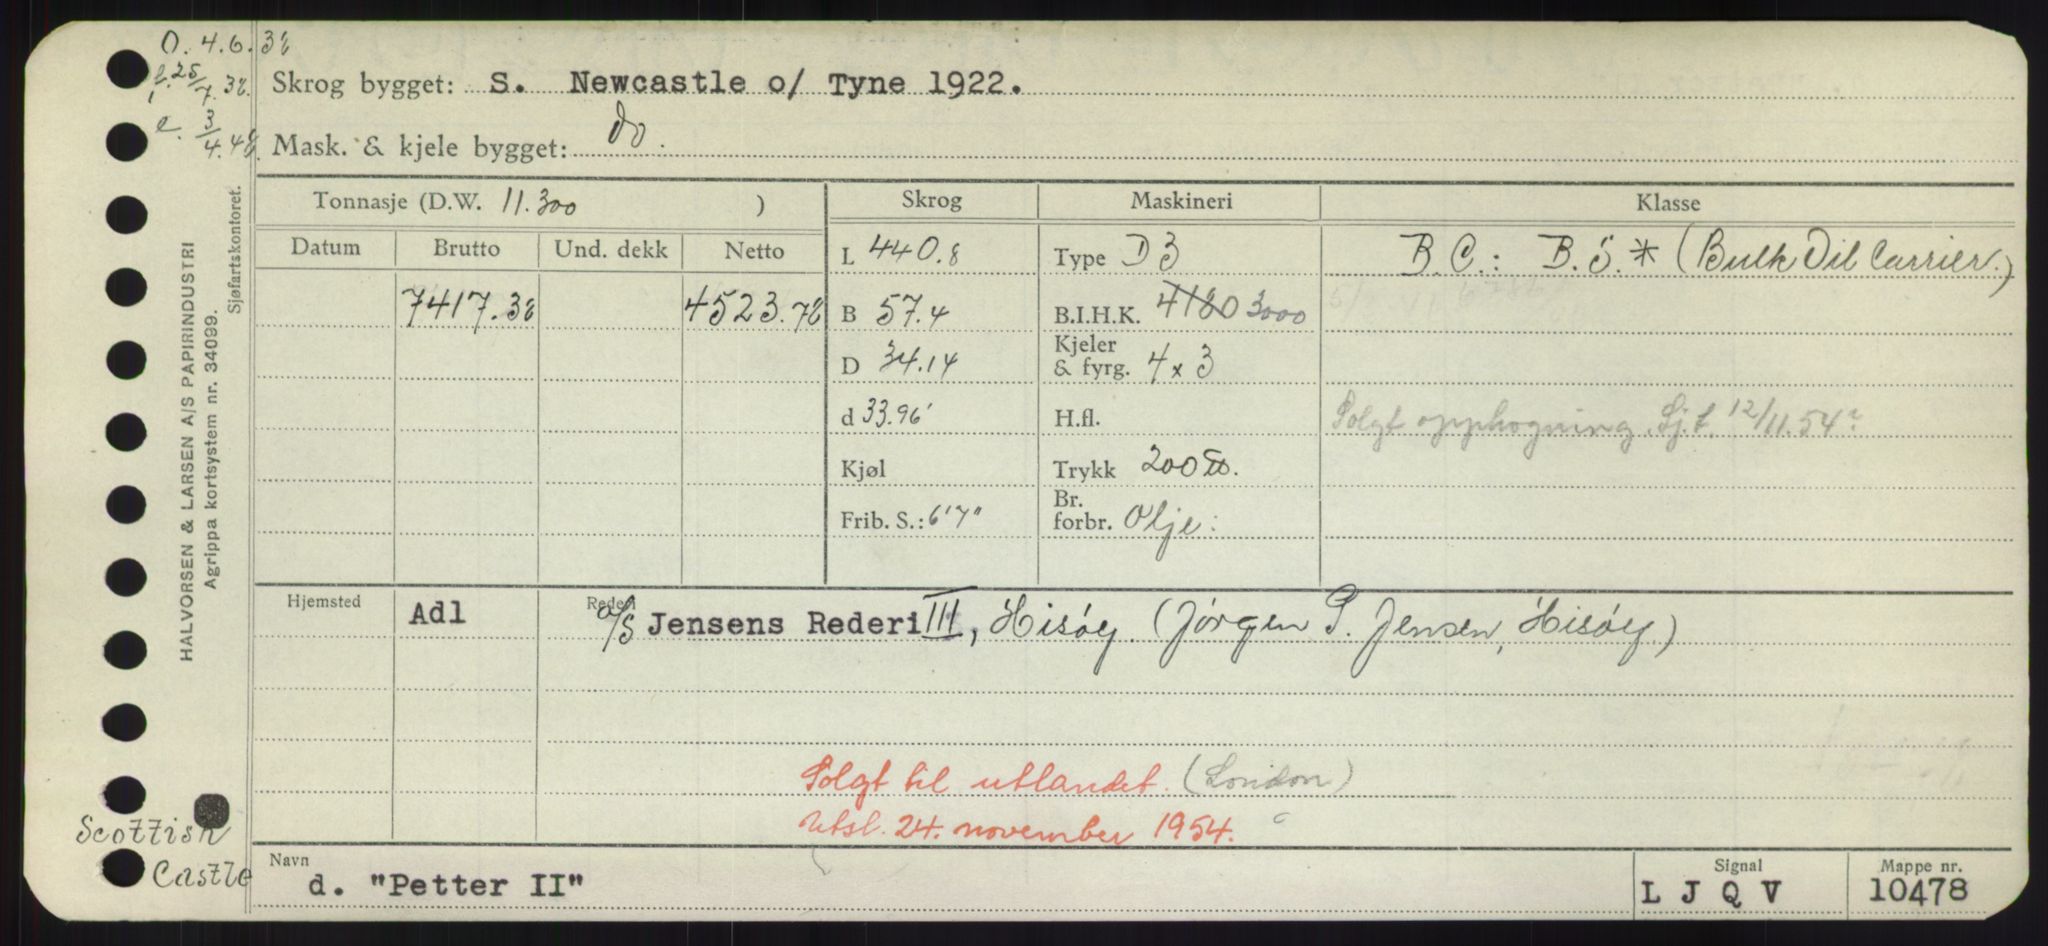 O. 4.6.38
25/7.38.
3/4.48.
Skrog bygget: S. Newcastle o/ Tyne 1922.
Mask. & kjele bygget: do.
Tonnasje (D.W. 11.300 ) Skrog Maskineri Klasse
Datum Brutto Und. dekk Netto
7417.38 4523.78
L 440.8
B 57.4
D 34.14
d 33.96'
Kjøl
Frib. S.: 6'7"
Type D 3
B.I.H.K. 4180 3000
Kjeler
& fyrg. 4 x 3
H.fl.
Trykk 200 lb.
Br.
forbr. Olje:
B.C.: B.S.* (Bulk Oil Carrier.)
Solgt opphogning. Sj.t. 12/11.54
Hjemsted Adl Rederi A/S Jensens Rederi III, Hisøy. (Jørgen P. Jensen, Hisøy.)
Solgt til utlandet. (London)
Utsl. 24. november 1954.
Navn d. "Petter II"
Signal L J Q V
Mappe nr. 10478
Scottish
Castle
HALVORSEN & LARSEN A/S PAPIRINDUSTRI
Agrippa kortsystem nr. 34099.
Sjøfartskontoret.